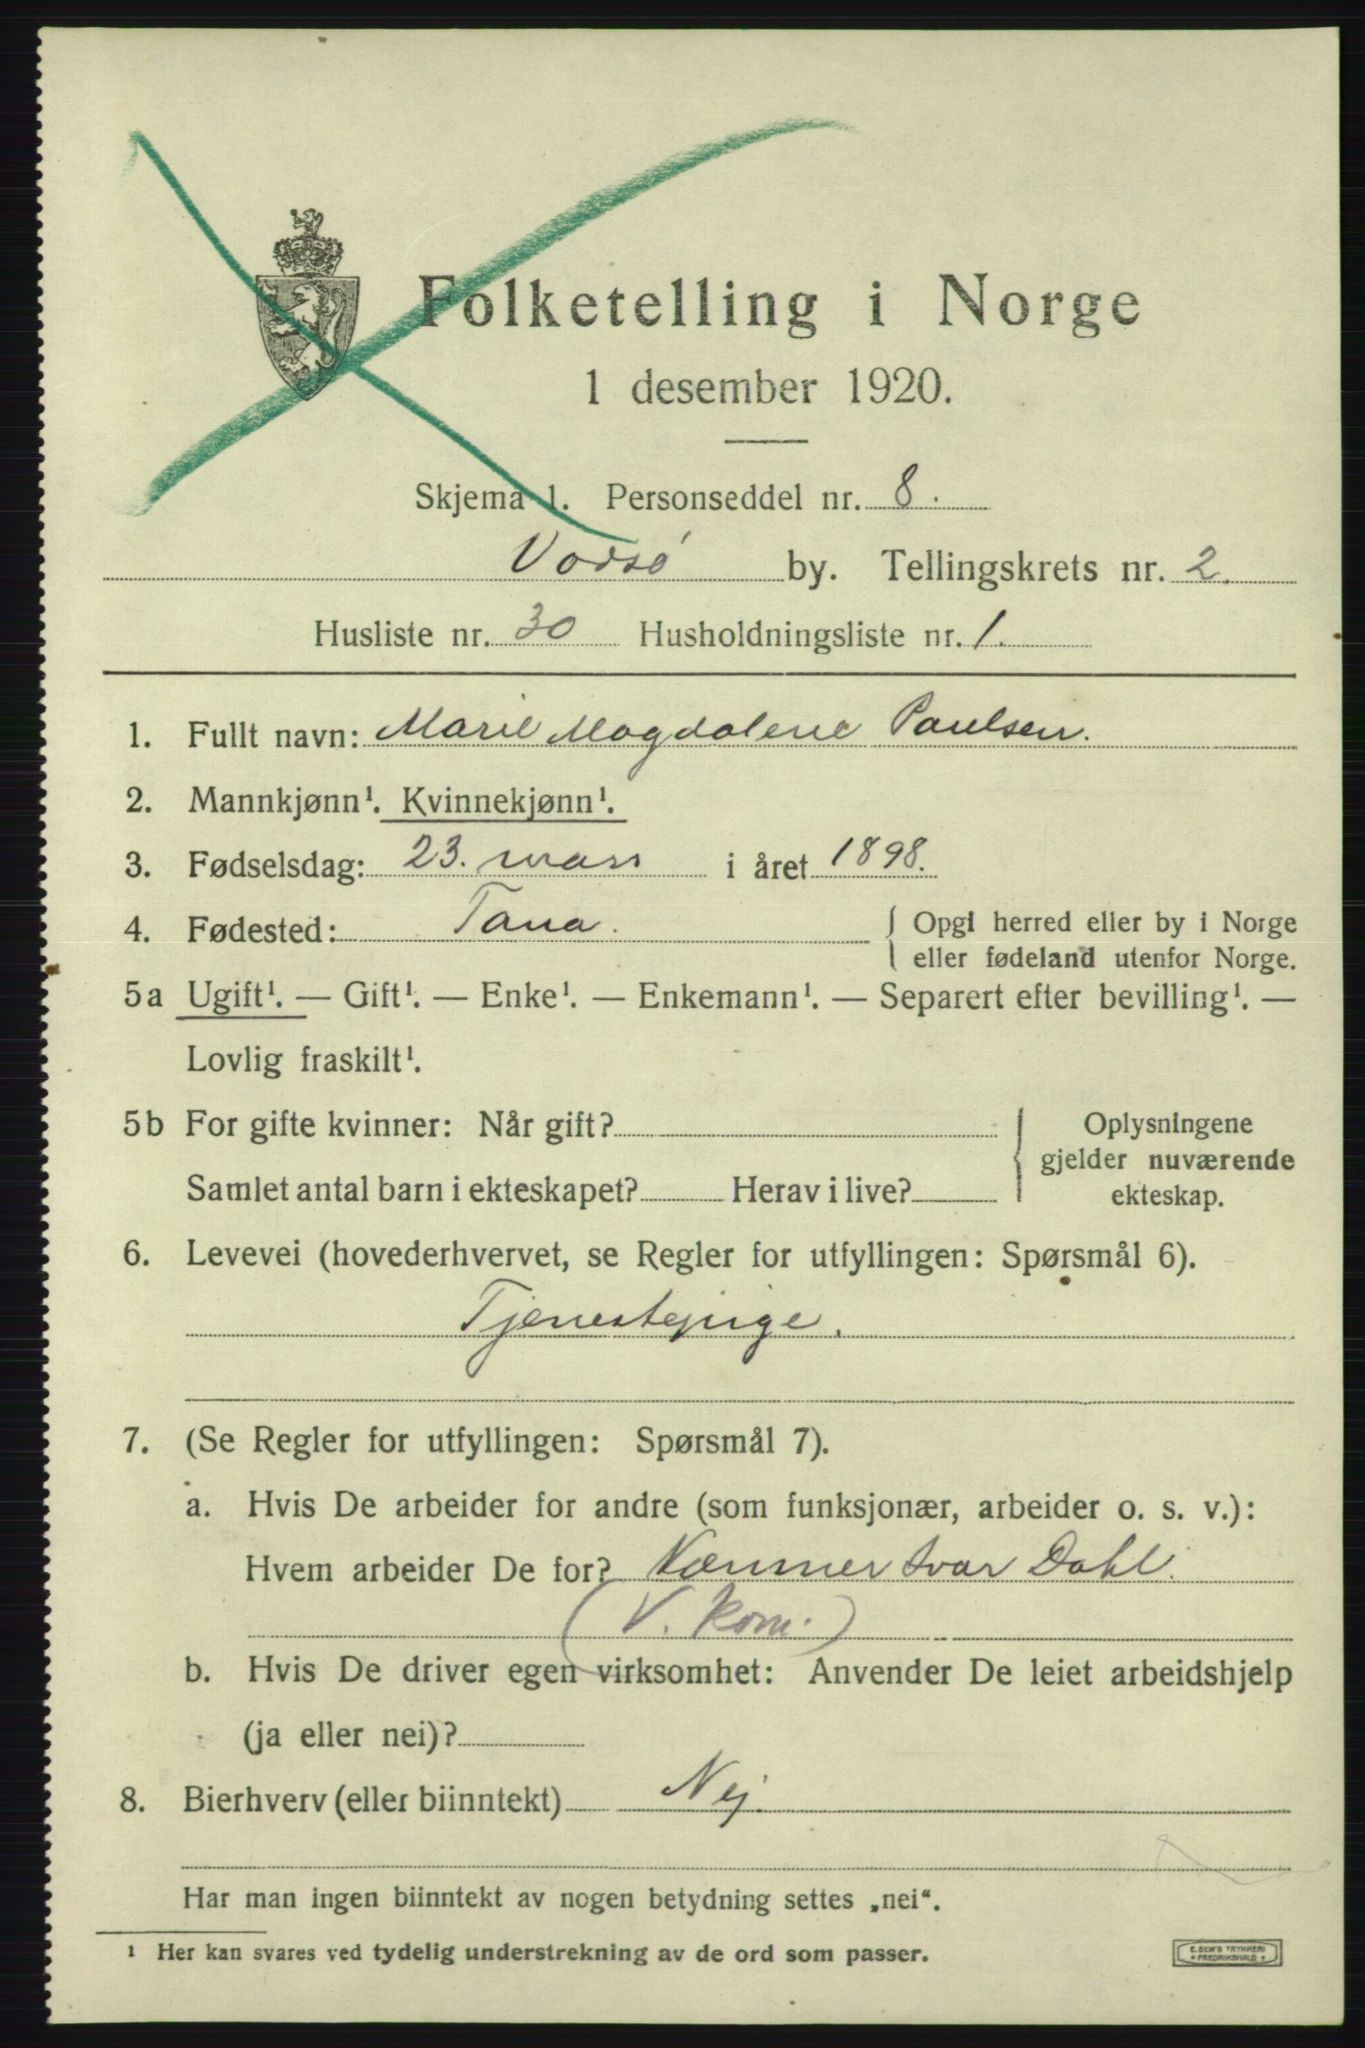 Folketelling i Norge
1 desember 1920.
Skjema 1. Personseddel nr. 8.
Vadsø by. Tellingskrets nr. 2.
Husliste nr. 30 Husholdningsliste nr. 1.
1. Fullt navn: Marie Magdalene Paulsen.
2. Mannkjønn¹. Kvinnekjønn¹.
3. Fødselsdag: 23. mars i året 1898.
4. Fødested: Tana. { Opgi herred eller by i Norge
eller fødeland utenfor Norge.
5a Ugift¹. — Gift¹. — Enke¹. — Enkemann¹. — Separert efter bevilling¹. —
Lovlig fraskilt¹.
5b For gifte kvinner: Når gift? { Oplysningene
gjelder nuværende
Samlet antal barn i ekteskapet? Herav i live? ekteskap.
6. Levevei (hovederhvervet, se Regler for utfyllingen: Spørsmål 6).
Tjenestepige.
7. (Se Regler for utfyllingen: Spørsmål 7).
a. Hvis De arbeider for andre (som funksjonær, arbeider o. s. v.):
Hvem arbeider De for? Kæmner Ivar Dahl.
(V. kom.)
b. Hvis De driver egen virksomhet: Anvender De leiet arbeidshjelp
(ja eller nei)?
8. Bierhverv (eller biinntekt) Nej.
Har man ingen biinntekt av nogen betydning settes „nei“.
¹ Her kan svares ved tydelig understrekning av de ord som passer.
E. SEM'S TRYKKERI
* FREDRIKSHALD *